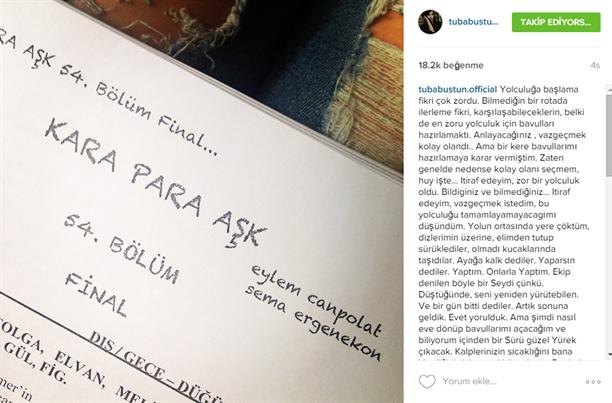 RA AŞK 54. Bölüm Final...
KARA PARA AŞK
54. BÖLÜM
FİNAL
eylem canpolat
sema ergenekon
DIŞ / GECE – DÜĞÜ
OLGA, ELVAN,
GÜL, FİG.
tubabustu...
TAKİP EDİYORS...
18.2k beğenme
4s
tubabustun.official Yolculuğa başlama
fikri çok zordu. Bilmediğin bir rotada
ilerleme fikri, karşılaşabileceklerin, belki
de en zoru yolculuk için bavulları
hazırlamaktı. Anlayacağınız , vazgeçmek
kolay olandı.. Ama bir kere bavullarımı
hazırlamaya karar vermiştim. Zaten
genelde nedense kolay olanı seçmem,
huy işte... Itiraf edeyim, zor bir yolculuk
oldu. Bildiginiz ve bilmediğiniz... Itiraf
edeyim, vazgeçmek istedim, bu
yolculuğu tamamlayamayacagımı
düşündüm. Yolun ortasında yere çöktüm,
dizlerimin üzerine, elimden tutup
sürüklediler, olmadı kucaklarında
taşıdılar. Ayağa kalk dediler. Yaparsın
dediler. Yaptım. Onlarla Yaptım. Ekip
denilen böyle bir Seydi çünkü.
Düştüğünde, seni yeniden yürütebilen.
Ve bir gün bitti dediler. Artık sonuna
geldik. Evet yorulduk. Ama şimdi nasıl
eve dönüp bavullarımı açacağım ve
biliyorum içinden bir Sürü güzel Yürek
çıkacak. Kalplerinizin sıcaklığını bana
Yorum ekle...